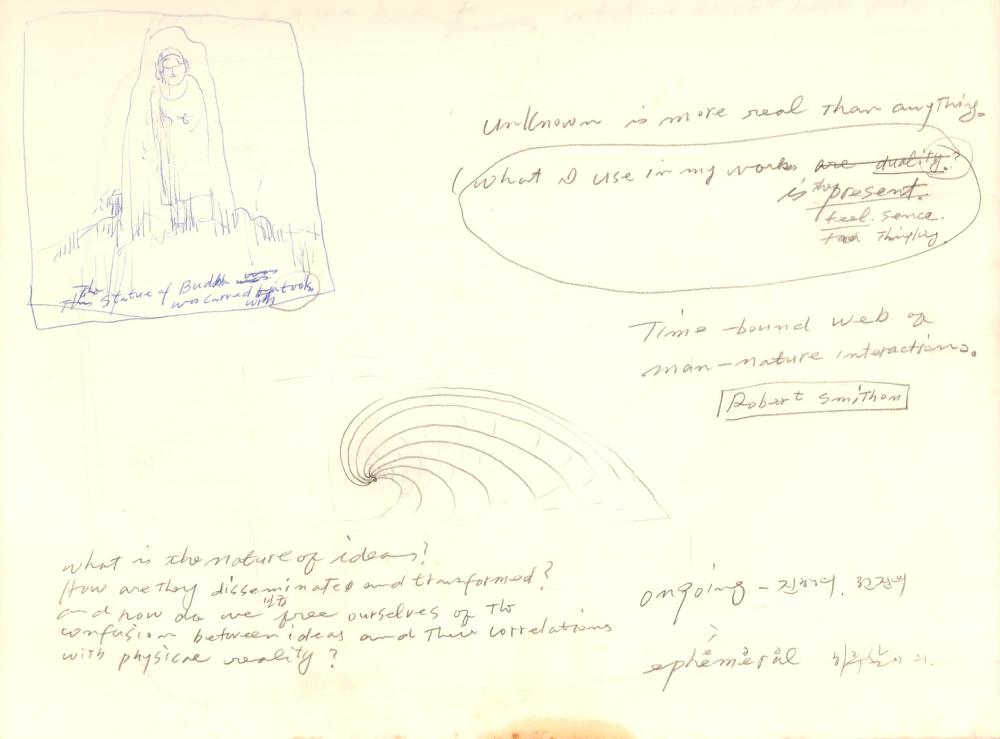 The
This Statue of Buddh was
was carved by a tools
with
unknown is more real than anything.
(what I use in my works are duality?
is the present.
feel. sence.
Thinking
Time-bound web of
man-nature interactions.
Robert Smithon
what is the nature of ideas?
How are they disseminated and transformed?
and how do we free ourselves of the
confusion between ideas and their correlations
with physical reality?
ongoing -
ephemeral